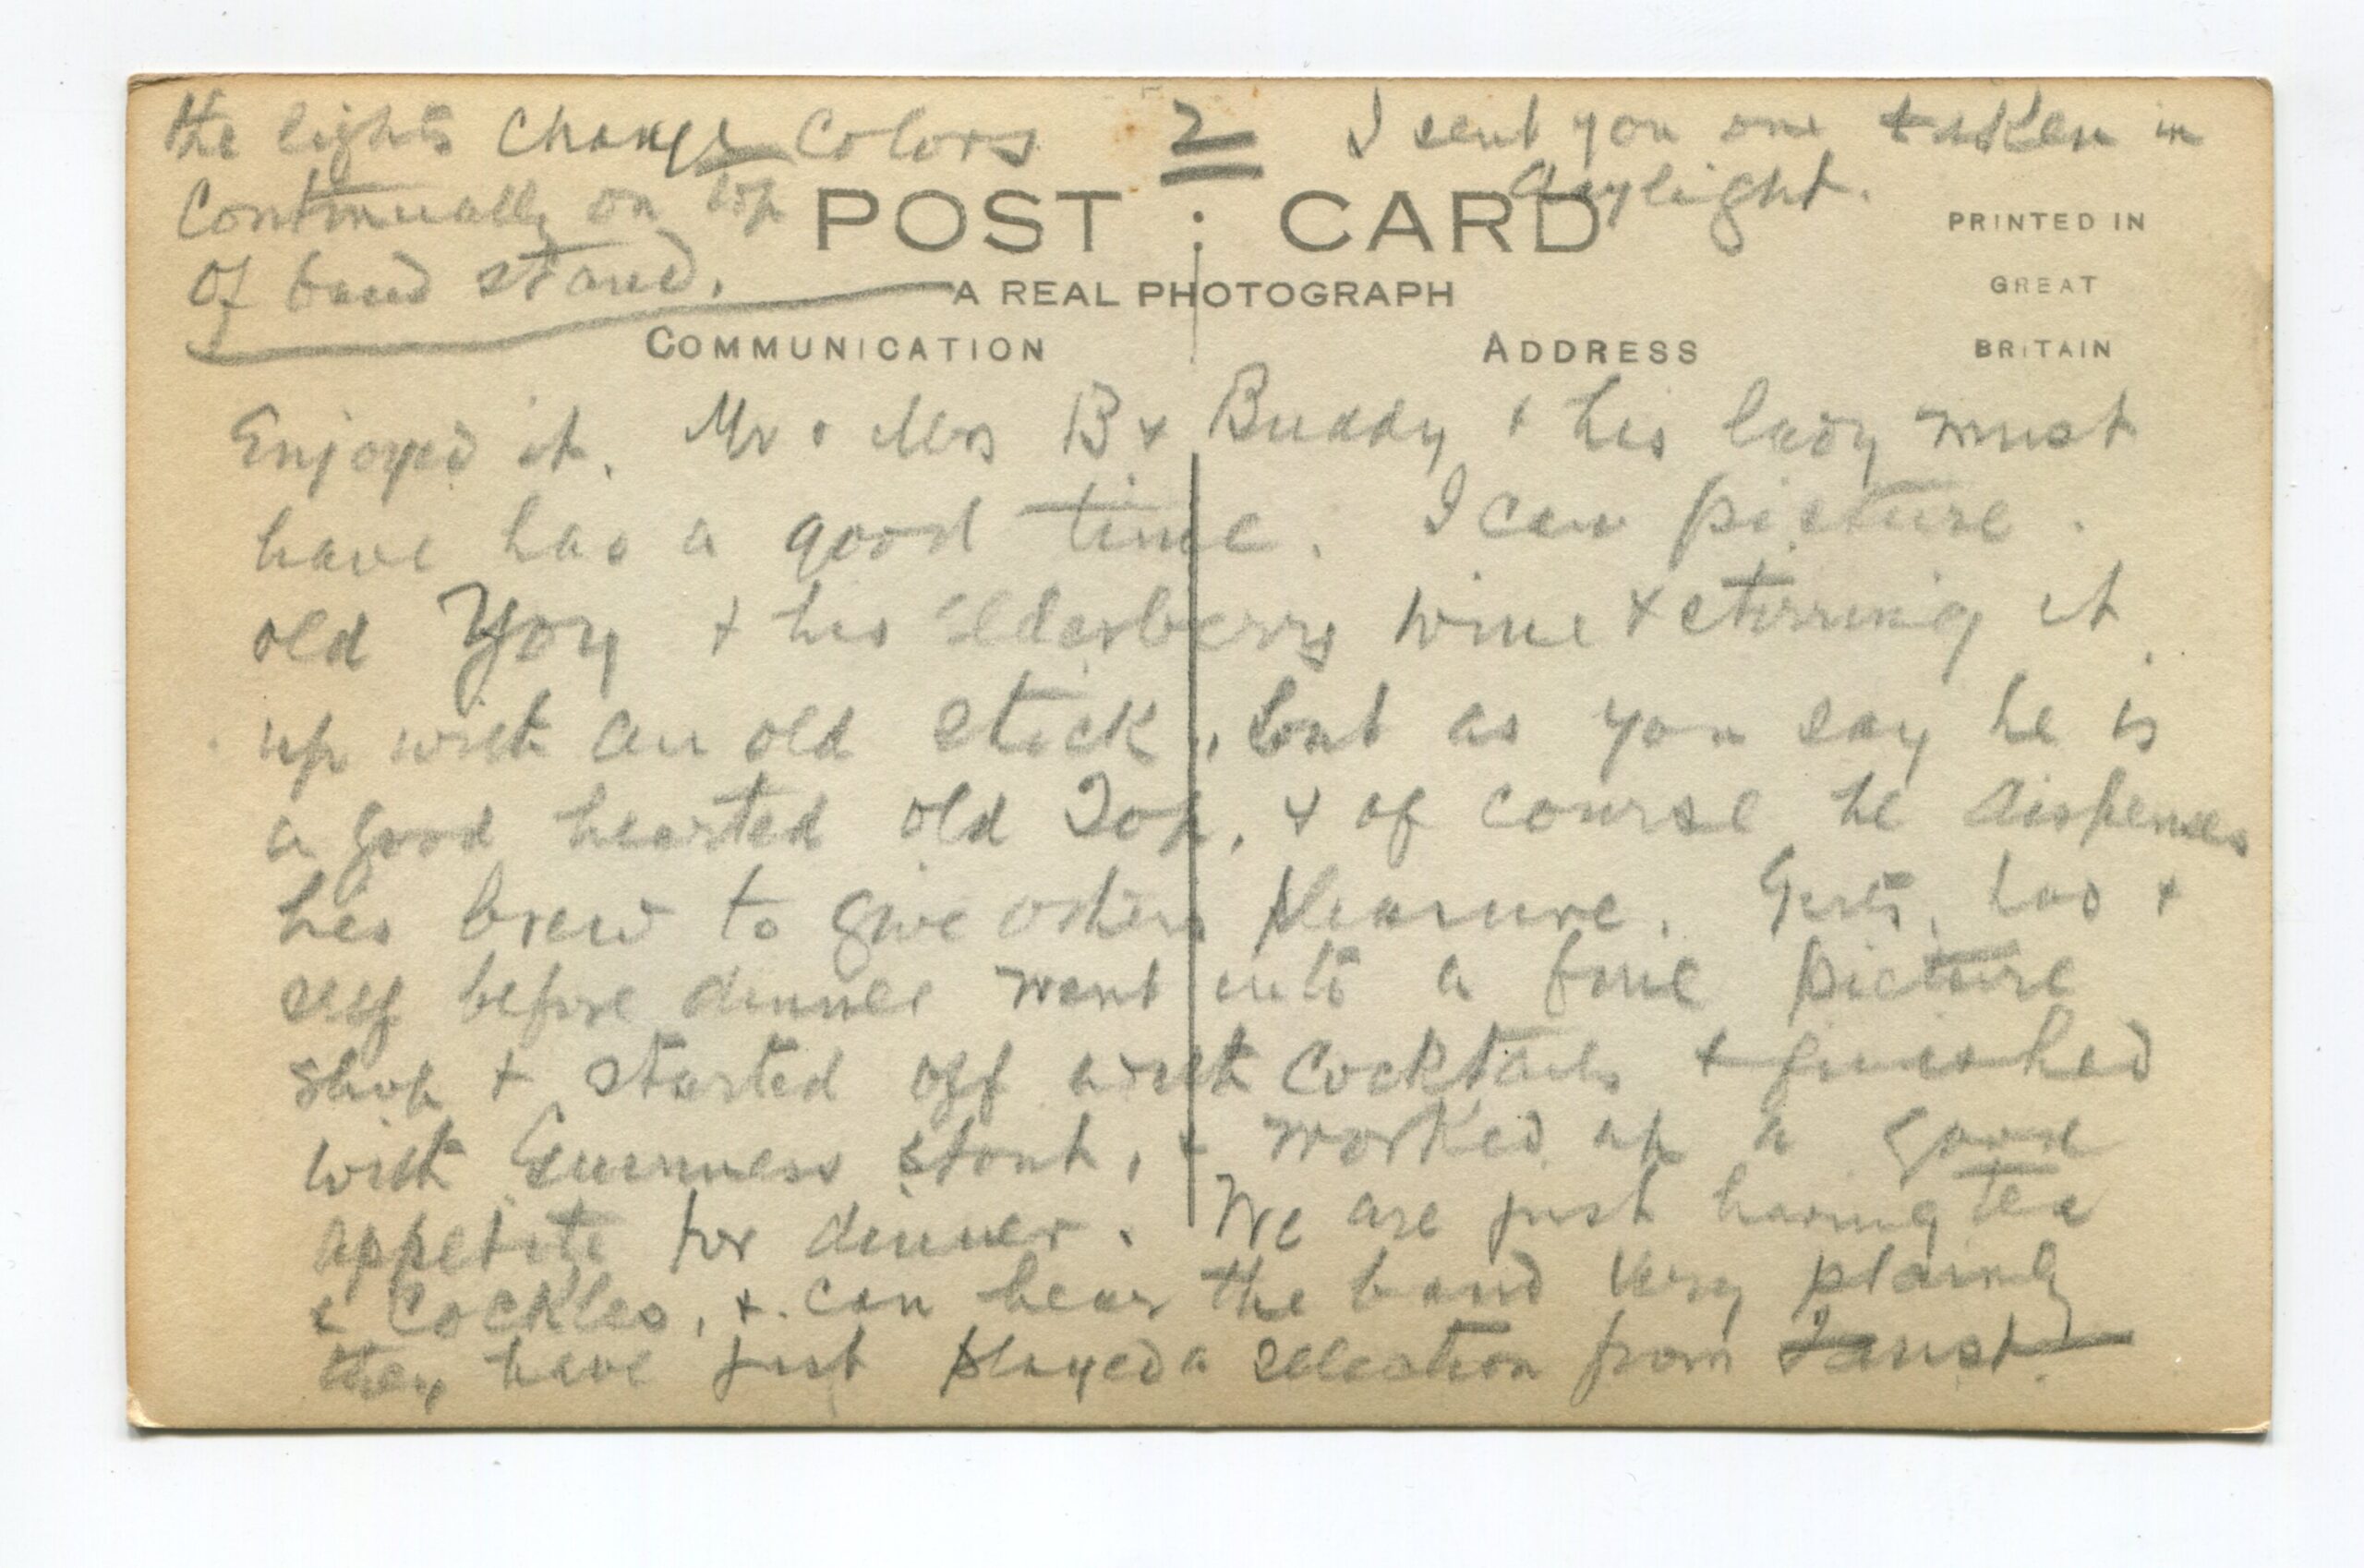 the lights change colors
continually on top
of band stand.
2
I sent you one taken in
daylight.
POST CARD
A REAL PHOTOGRAPH
COMMUNICATION
ADDRESS
PRINTED IN
GREAT
BRITAIN
Enjoyed it. Mr & Mrs B & Buddy & his lady must
have had a good time. I can picture
old Yoy & his elderberry wine & stirring it
up with an old stick, but as you say he is
a good hearted old Top, & of course he dispenses
his brew to give others pleasure. Gert, had &
self before dinner went into a fine picture
shop & started off with cocktails & finished
with Guinness stout, & worked up a good
appetite for dinner. We are just having tea
& cockles, & can hear the band very plainly
they have just played a selection from Faust.